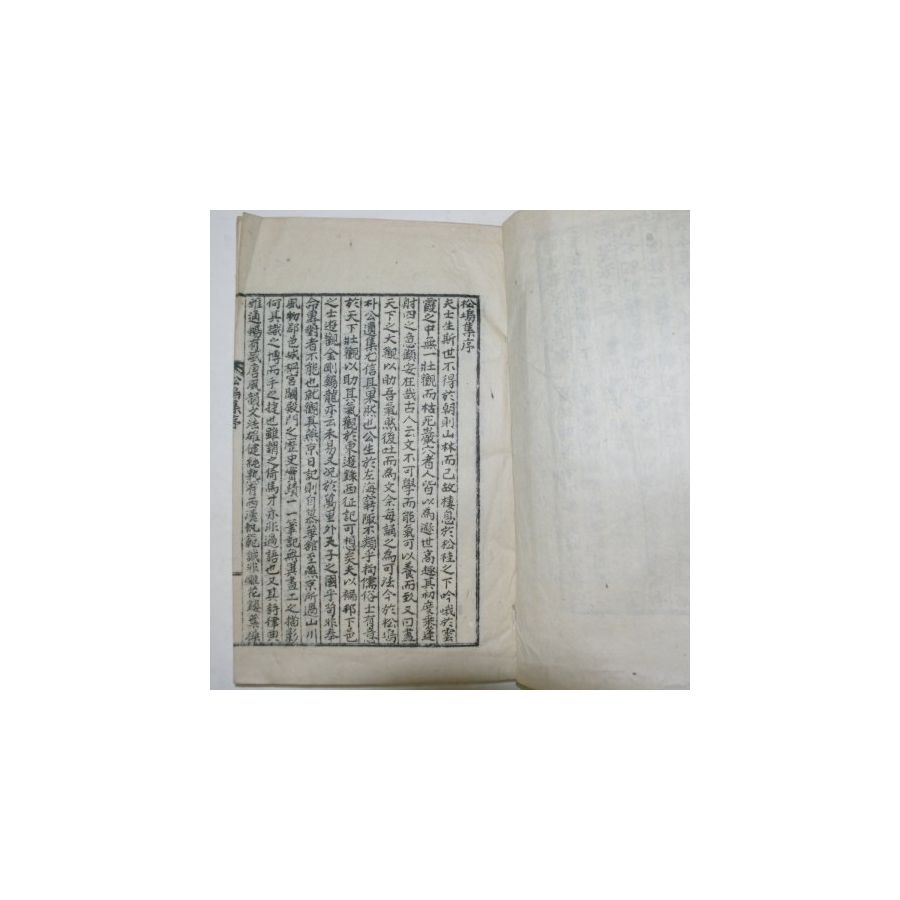 松塢集序
夫士生斯世不得於朝則山林而已故棲息於松桂之下吟哦於雲
霞之中無一壯觀而枯死巖穴者人皆以爲遯世高趣其初度桑蓬
射四之意顧安在哉古人云文不可學而能氣可以養而致又曰盡
天下之大觀以助吾氣然後吐而爲文余每誦之爲可法今於松塢
朴公遺集尤信其果然也公生於左海窮陬不類乎拘儒俗士有意
於天下壯觀以助其氣觀於東遊錄西征記可想矣夫以褊邦下邑
之士遊觀金剛鷄龍亦云未易又况於萬里外天子之國乎苟非奉
命專對者不能也就觀其燕京日記則自慕華館至燕京所過山川
風物郡邑城網宮闕殿門之歷史實績一一筆記無異畫工之描影
何其識之博而手之捷也雖謂之倚馬才亦非過語也又其詩律典
雅通暢有盛唐風韻文法雄健純熟有西漢軌範誠非雕花鏤葉
松塢集序